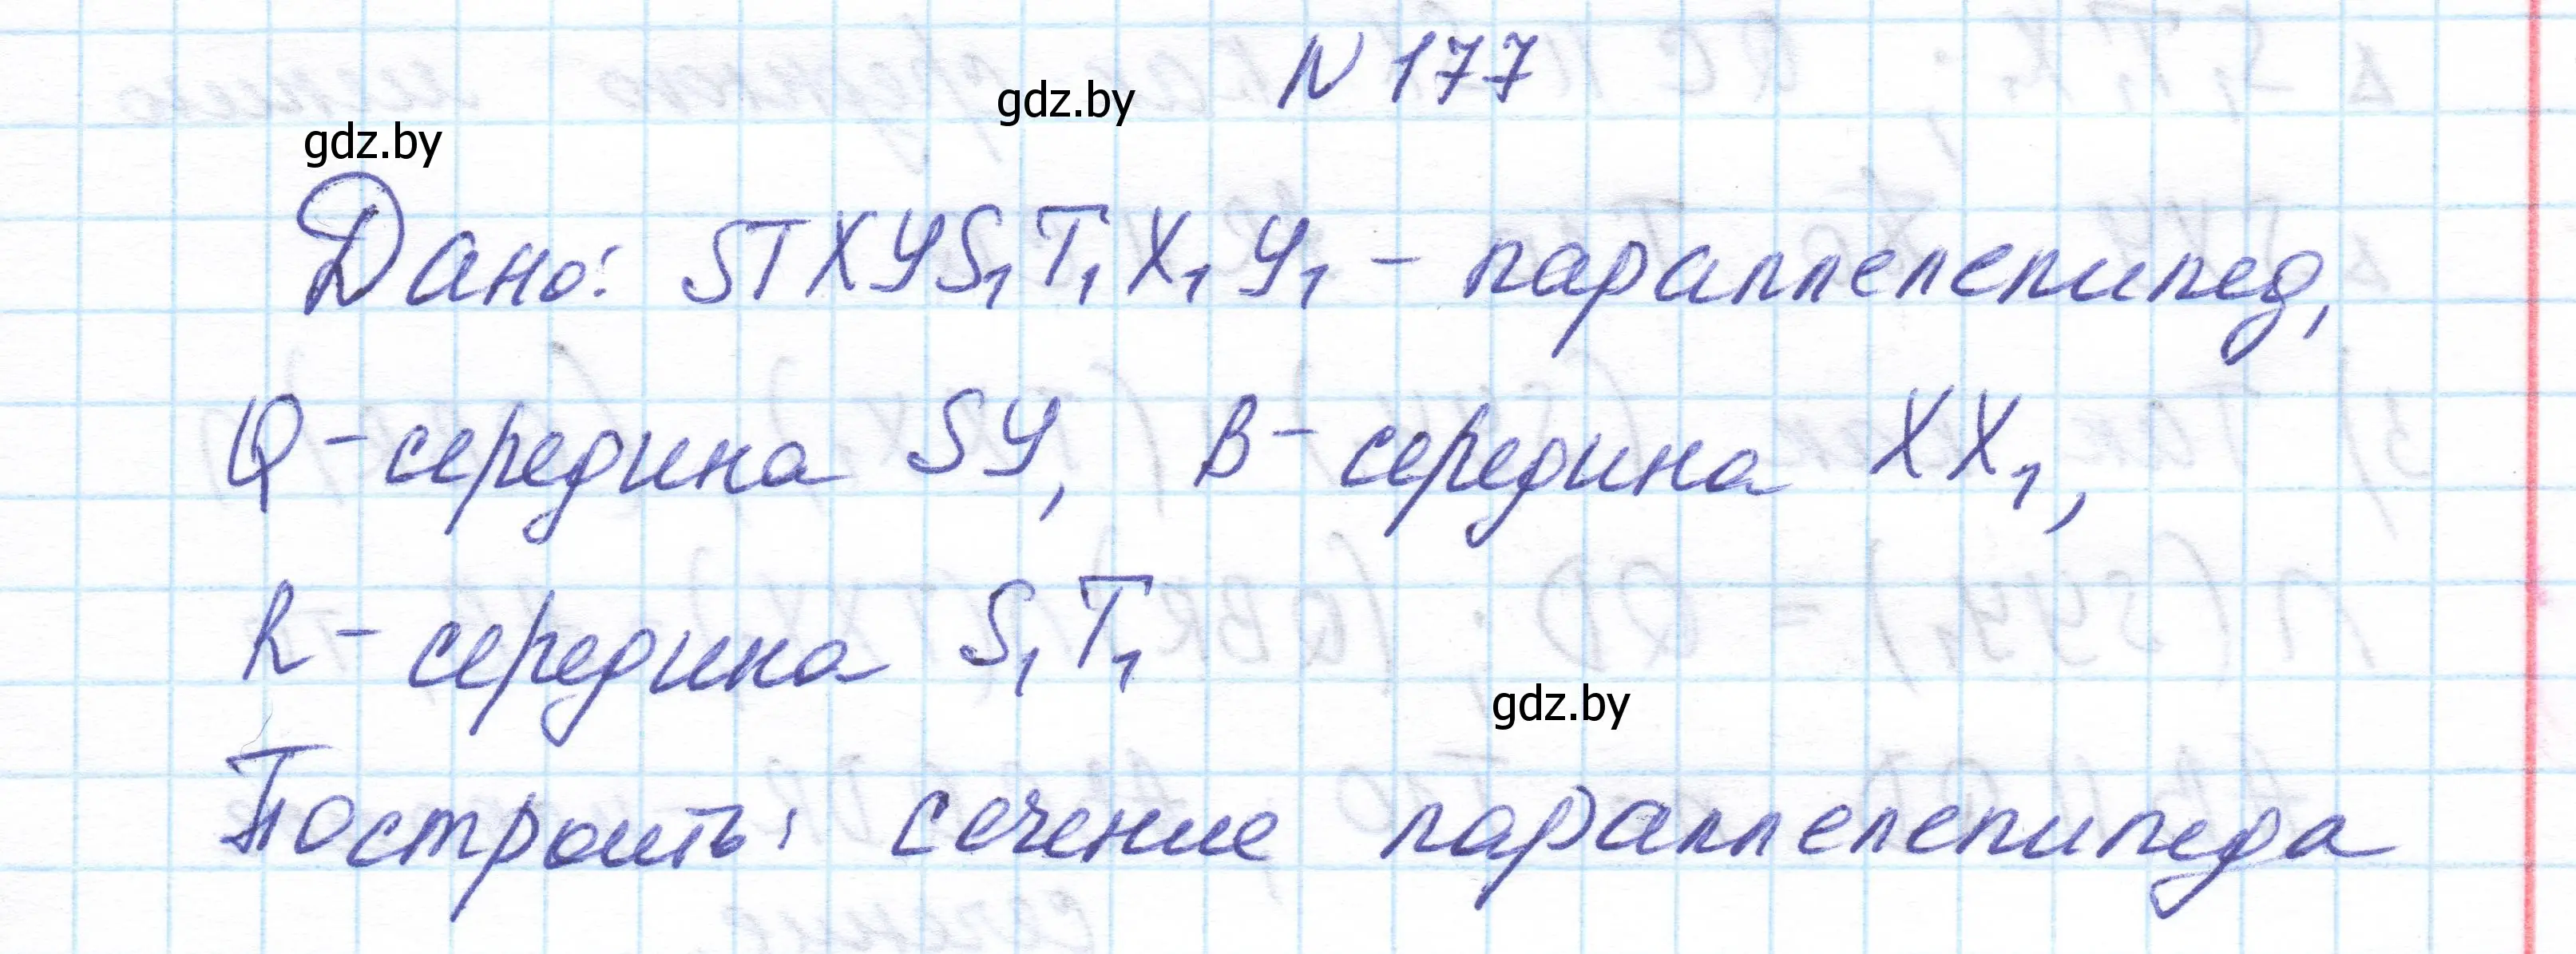 N 177
gdz.by
gdz.by
Дано: STXYS₁T₁X₁Y₁ - параллелепипед,
Q - середина SY, B - середина XX₁,
R - середина S₁T₁
gdz.by
Построить: сечение параллелепипеда